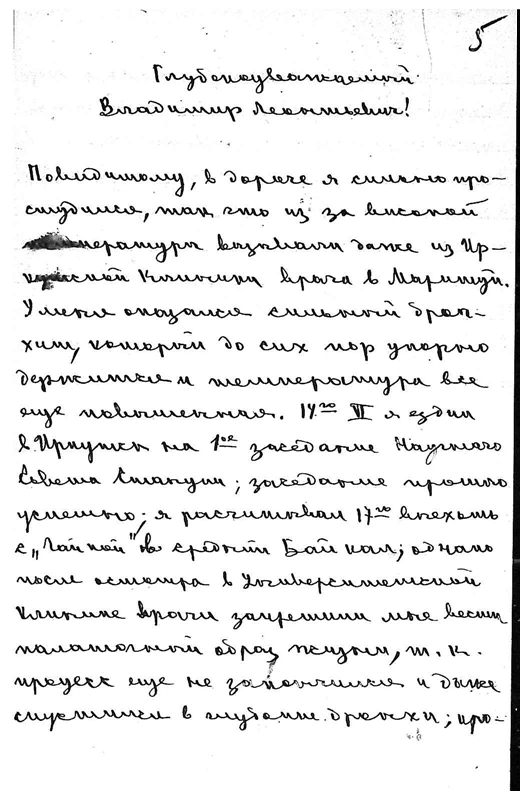 5
Глубокоуважаемый
Владимир Леонтьевич!
Повидимому, в дороге я сильно про-
студился, так что из за високой
температуры вызывали даже из Ир-
кутской Клиники врача в Маритуй.
У меня оказался сильный брон-
хит, который до сих пор упорно
держится и температура все
еще повышенная. 14го VI я ездил
в Иркутск на 1ое заседание Научного
Совета Станции; заседание прошло
успешно; я расчитывал 17го выехать
с „Чайкой" в средний Байкал; однако
после осмотра в Университетской
клинике врачи запретили мне вести
палаточный образ жизни, т. к.
процесс еще не закончился и даже
спустился в глубокие бронхи; про-